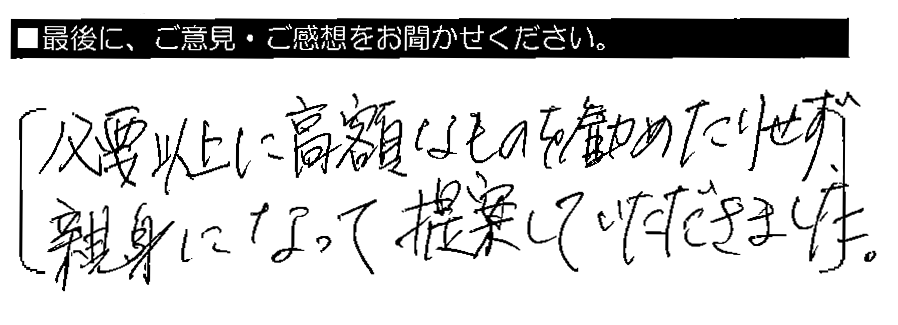 ■最後に、ご意見・ご感想をお聞かせください。
必要以上に高額なものを勧めたりせず、
親身になって提案していただきました。